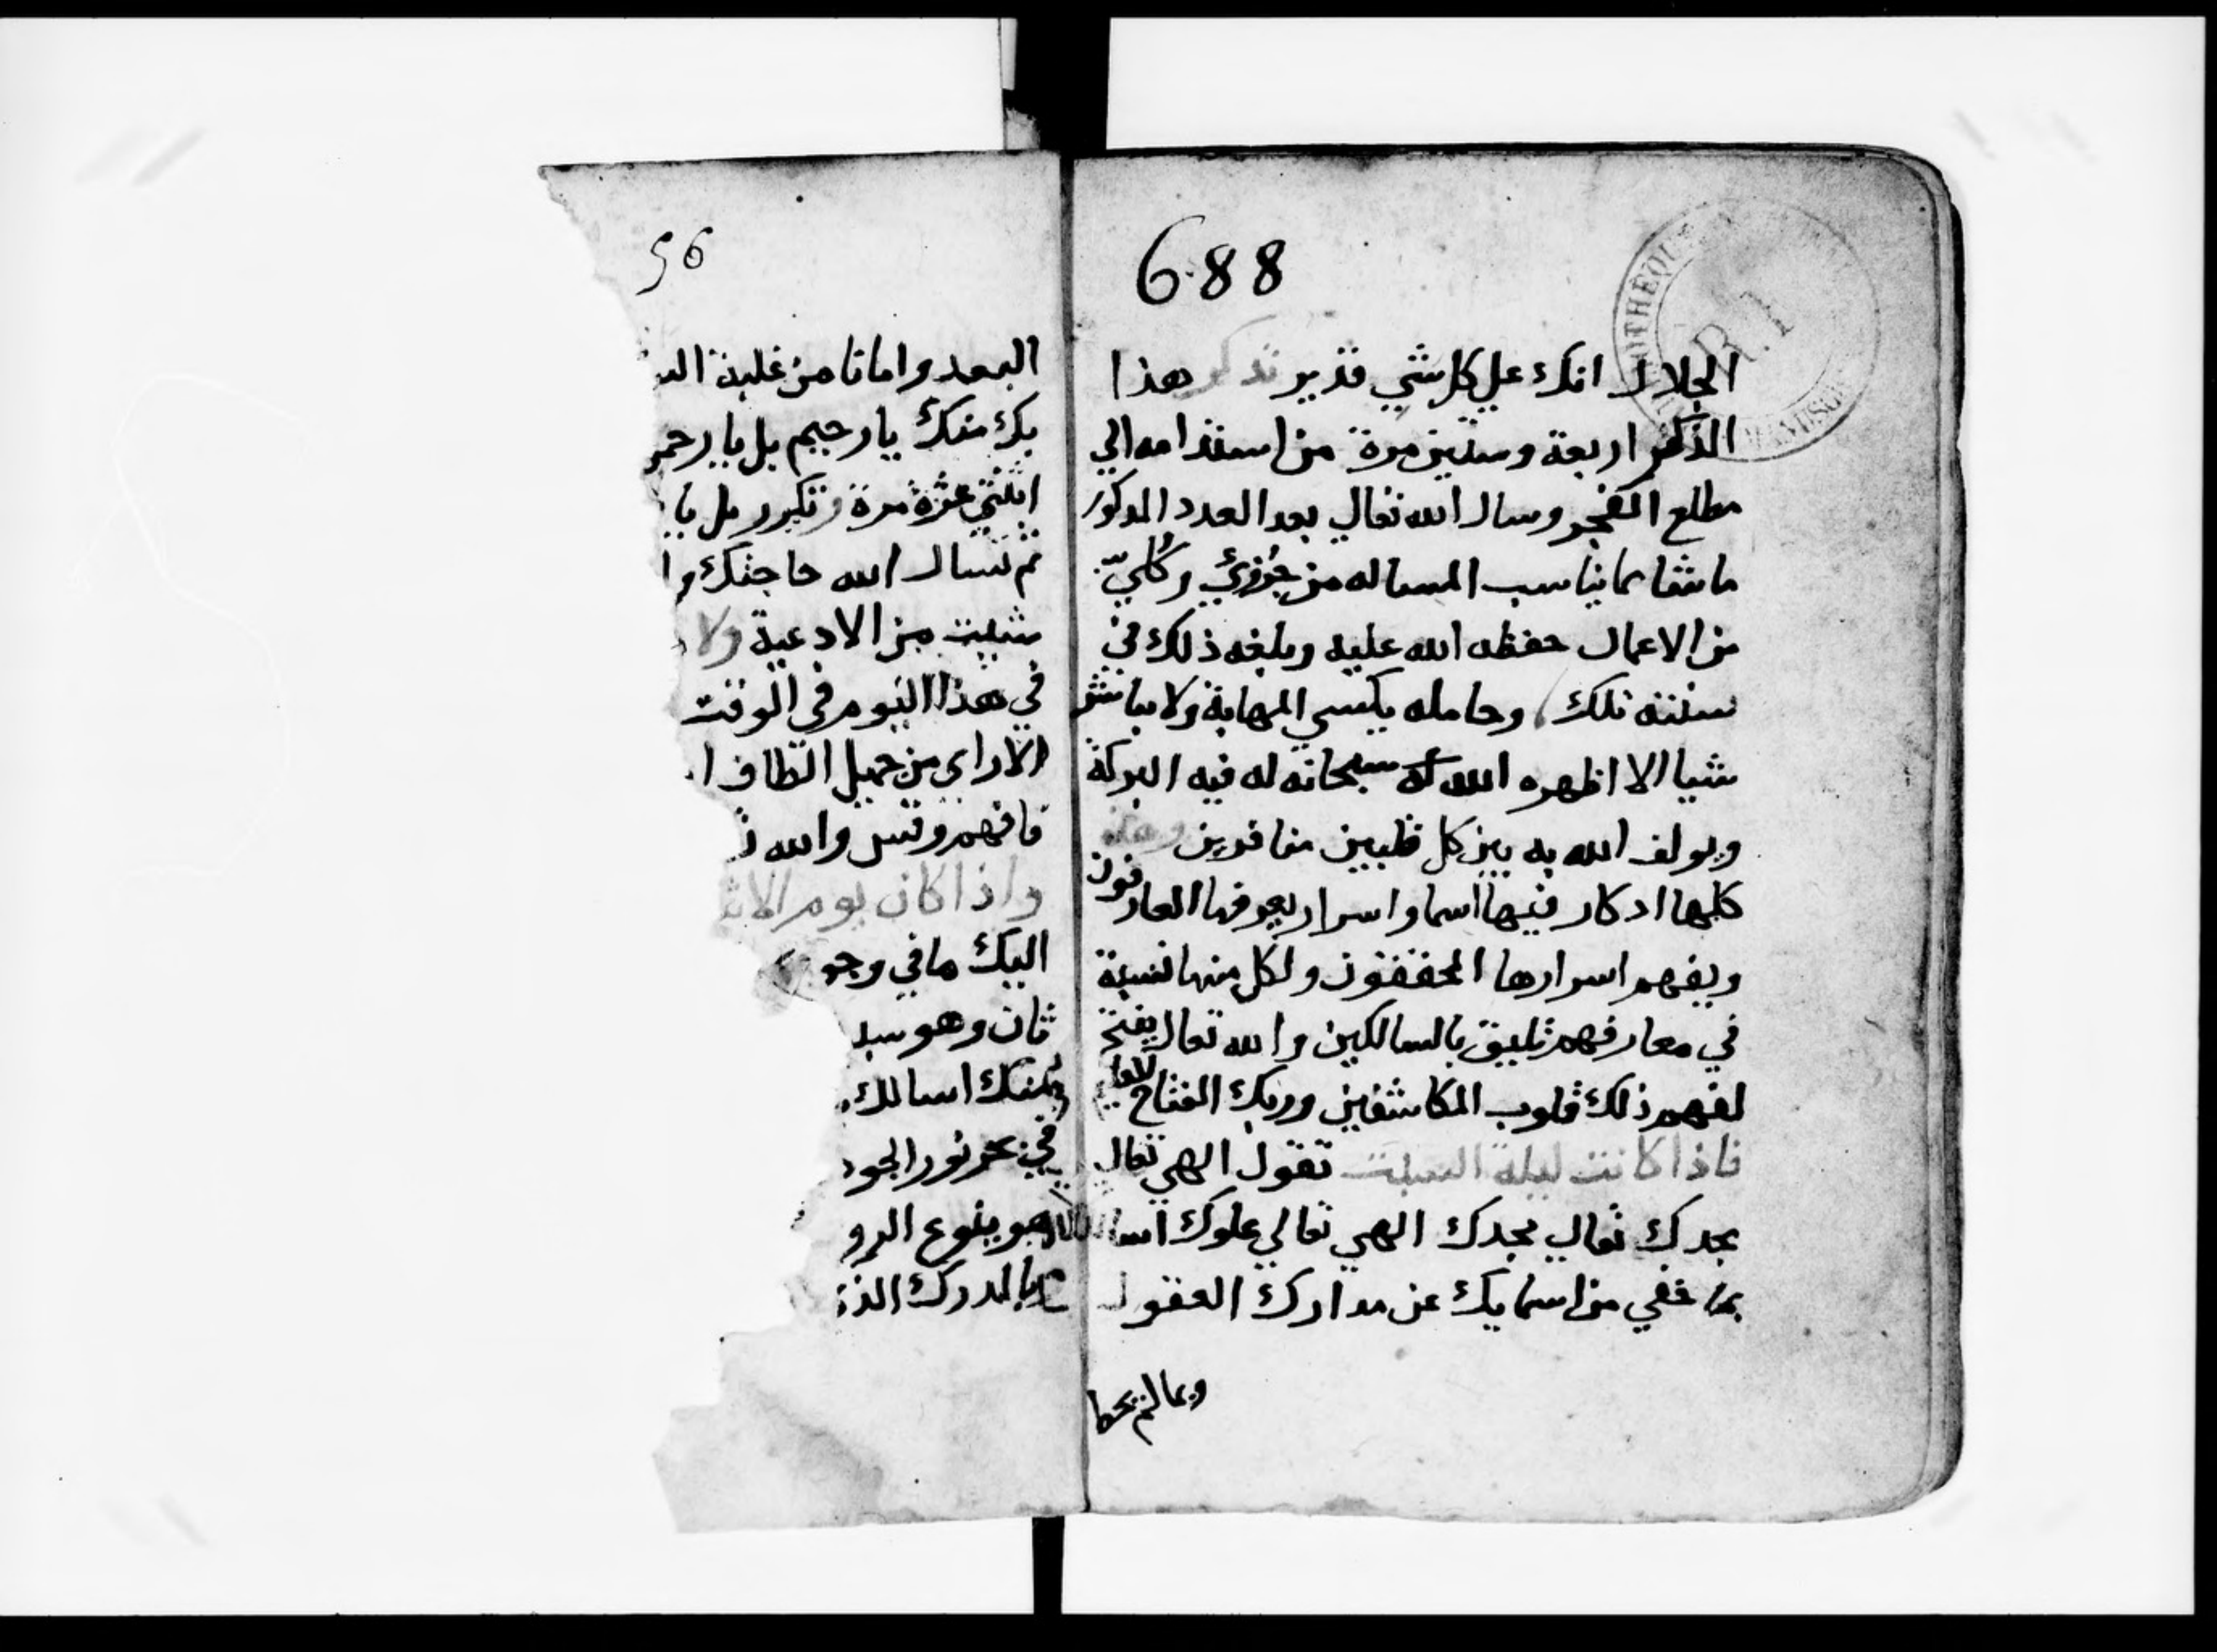 688
الجلال انك علي كل شي قدير تدكر هذا
الذكر اربعة وستين مرة من استدامه الي
مطلع الفجر وسال الله تعالي بعد العدد المدكور
ما شا مما يناسب المساله من جُزءيّ وكُليّ
من الاعمال حفظه الله عليه وبلغه ذلك في
سنته تلك وحامله يكسي المهابة ولا يباشر
شيا الا اظهره الله له سبحانه له فيه البركة
ويولف الله به بين كل قلبين متنافرين وهذه
كلها ادكار فيها اسما واسرار يعرفها العارفون
ويفهم اسرارها المحققون ولكل منها نسبة
في معارفهم تليق بالسالكين والله تعالي يفتح
لفهم ذلك قلوب المكاشفين وربك الفتاح العليم
فاذا كانت ليلة السبت تقول الهي تعالي
مجدك تعالي مجدك الهي تعالي علوك اسالك
بما خفي من اسمايك عن مدارك العقول
وبما لم يحط
56
البعد وامانا من غلبة
بك منك يا رحيم بل يا رحمن
اثنتي عشرة مرة وتكرر بل يا
ثم تسال الله حاجتك
شييت من الادعية ولا
في هذا اليوم في الوقت
الا راي من جميل الطاف
فافهم وقس والله
واذا كان يوم
اليك ما في وجو
ثان وهو
منك اسالك
في بحر نور الجود
هو ينبوع الرو
بالمدرك